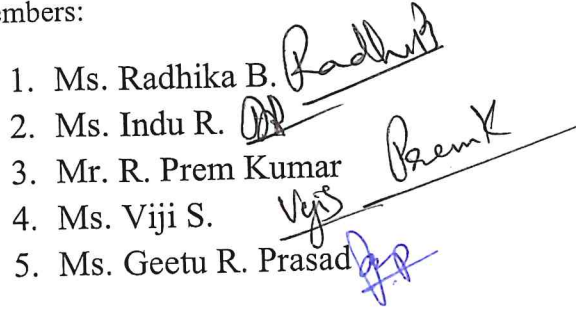 embers:
1. Ms. Radhika B. Radhu
2. Ms. Indu R.
3. Mr. R. Prem Kumar PremK
4. Ms. Viji S. Vijis
5. Ms. Geetu R. Prasad g.p